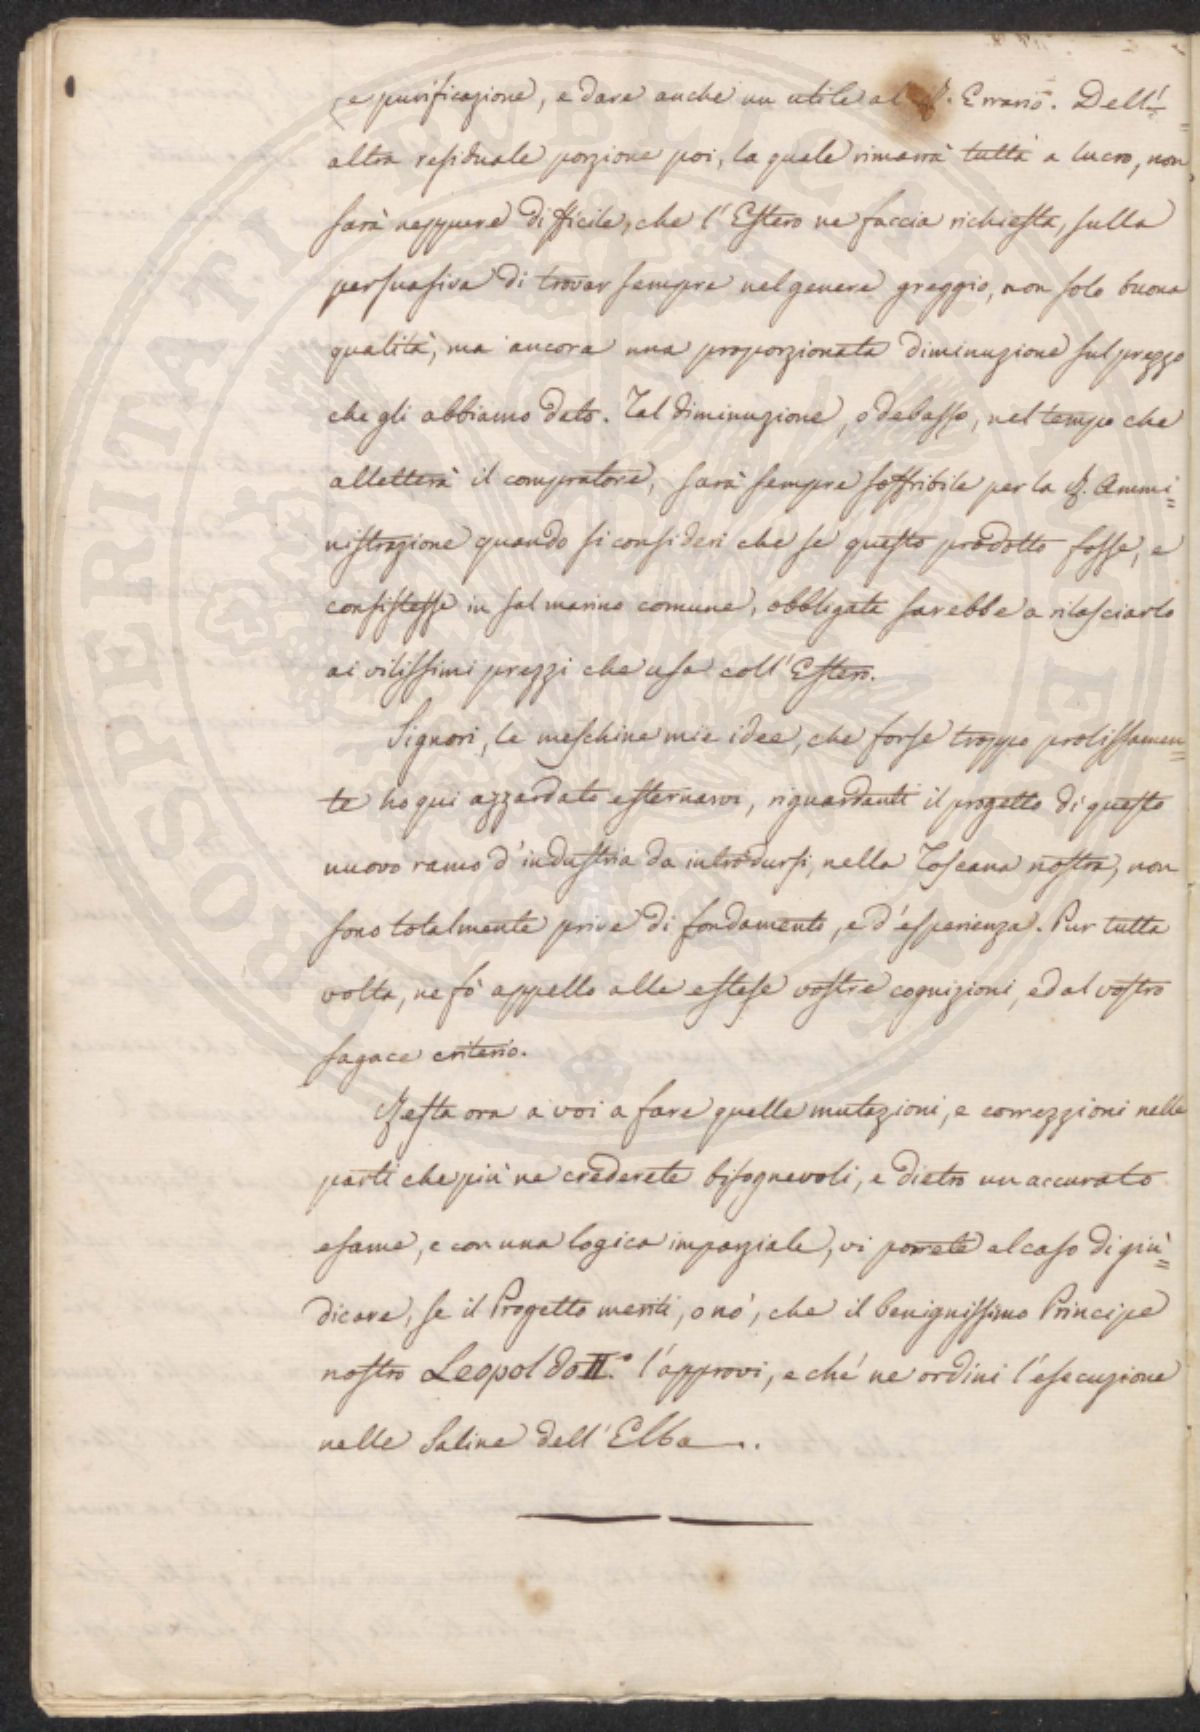 e purificazione, e dare anche un utile al R. Errario. Dell'
altra residuale porzione poi, la quale rimarrà tutta a lucro, non
sarà neppure difficile, che l'Estero ne faccia richiesta, sulla
persuasiva di trovar sempre nel genere greggio, non solo buona
qualità, ma ancora una proporzionata diminuzione sul prezzo
che gli abbiamo dato. Tal diminuzione, o debasso, nel tempo che
alletterà il compratore, sarà sempre soffribile per la R. Ammi=
nistrazione quando si consideri che se questo prodotto fosse, e
consistesse in sal marino comune, obbligata sarebbe a rilasciarlo
ai vilissimi prezzi che usa coll'Estero.
Signori, le meschine mie idee, che forse troppo prolissamen=
te ho qui azzardato esternarvi, riguardanti il progetto di questo
nuovo ramo d'industria da introdursi, nella Toscana nostra, non
sono totalmente prive di fondamento, e d'esperienza. Pur tutta
volta, ne fò appello alle estese vostre cognizioni, ed al vostro
sagace criterio.
Resta ora a voi a fare quelle mutazioni, e correzzioni nelle
parti che più ne crederete bisognevoli, e dietro un accurato
esame, e con una logica imparziale, vi porrete al caso di giu=
dicare, se il Progetto meriti, o nò, che il benignissimo Principe
nostro Leopoldo II.° l'approvi, e chè ne ordini l'esecuzione
nelle Saline dell'Elba.
PROSPERITATI PUBLICAE AUGENDAE